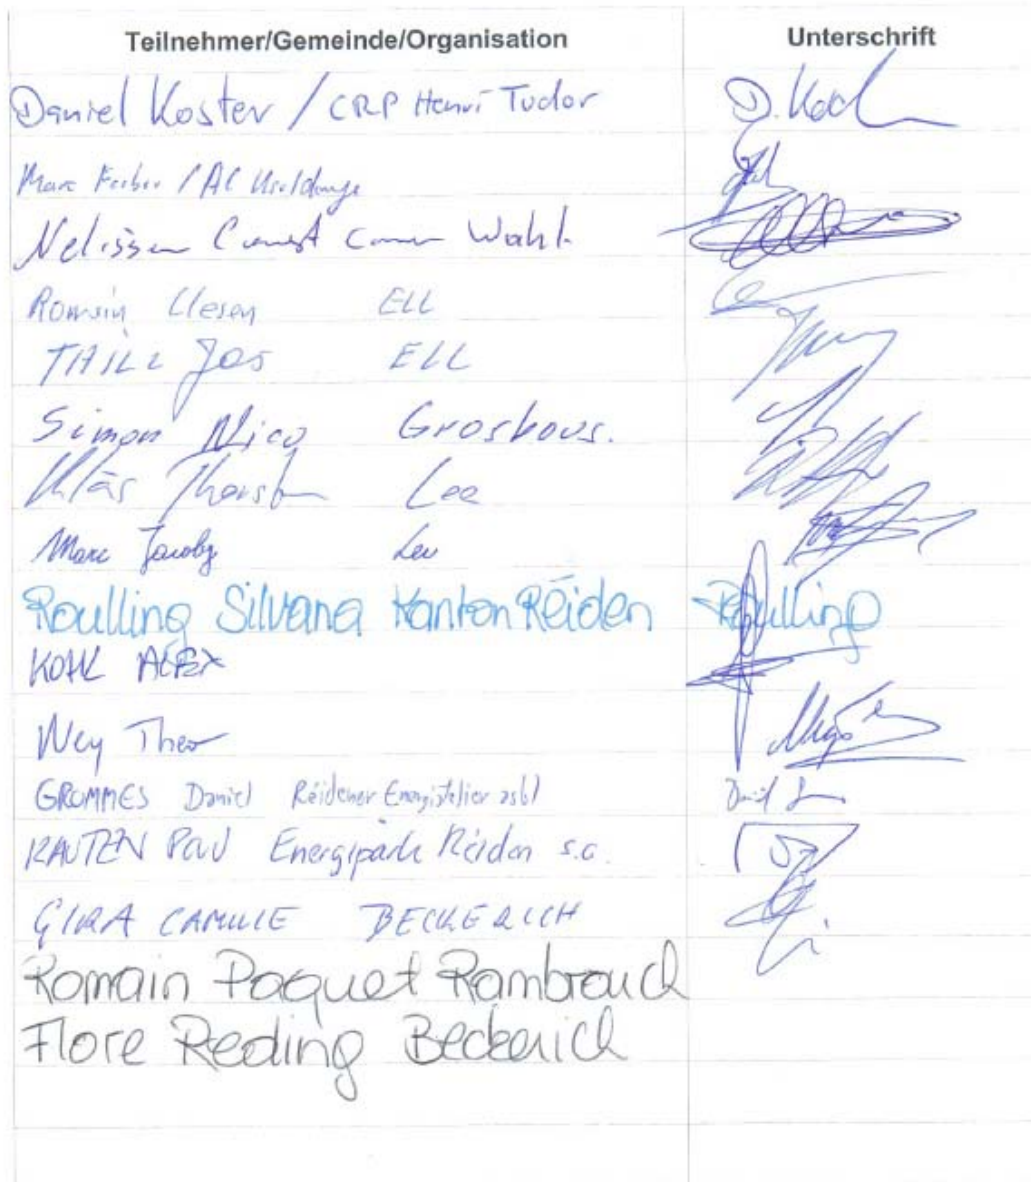 Teilnehmer/Gemeinde/Organisation Unterschrift
Daniel Koster / CRP Henri Tudor D. Koch
Marc / AC Useldange
Nelissen Wahl
Romain Clesen ELL
THILL Jos ELL
Simon Nico Grosbous.
Klär Thorsten Lee
Marc Jacoby Lev
Roulling Silvana Kanton Réiden Roulling
KOHL ALEX
Ney Theo
GROMMES Daniel Réidener Energiatelier asbl
KAUTEN Paul Energipark Réiden s.a.
GIRA CAMILLE BECKERICH
Romain Paquet Rambrouch
Flore Reding Beckerich